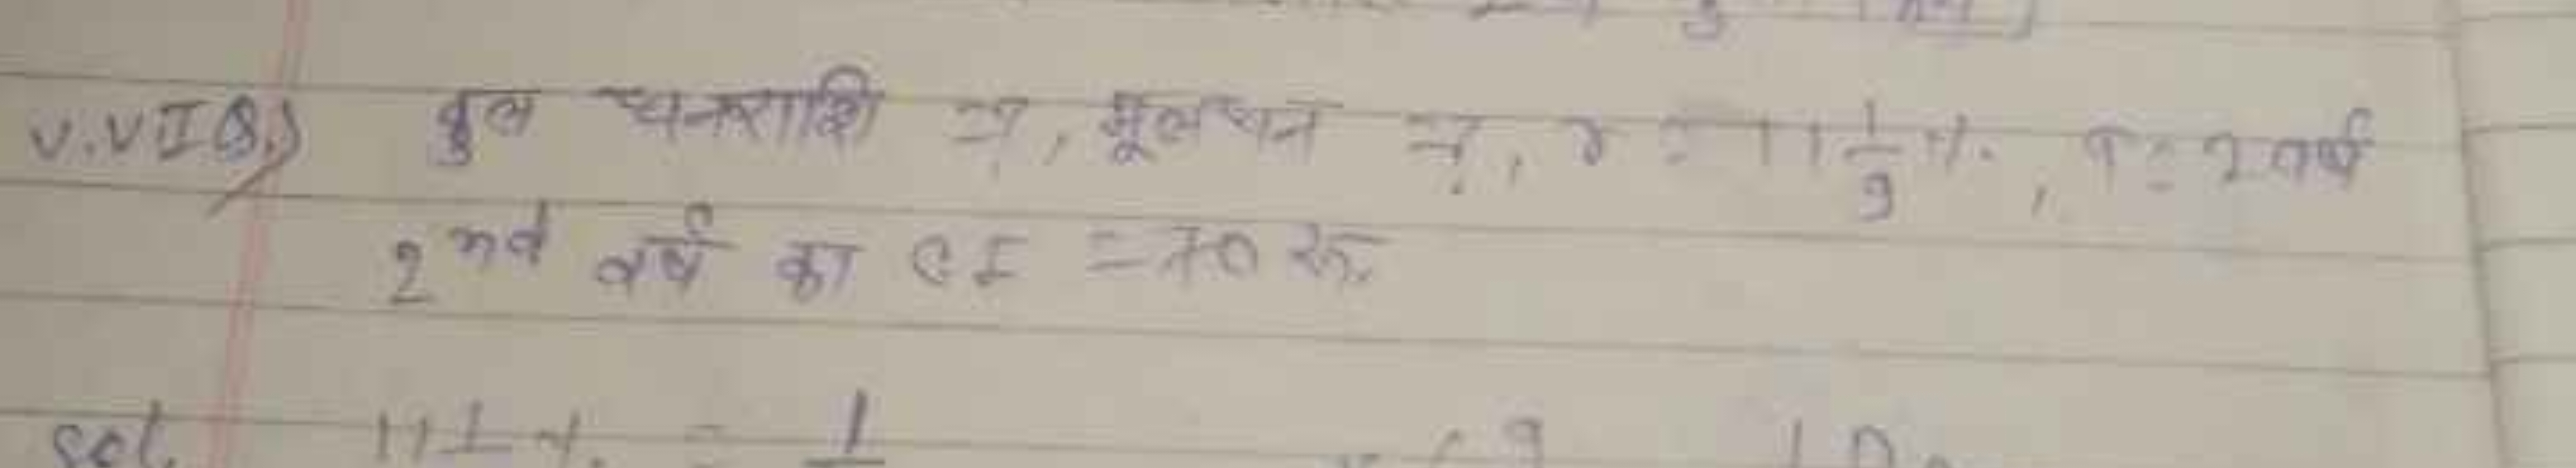 V.V.I (Q.) कुल धनराशि = ?, मूलधन = ?, r = 11 1/9 %, T = 2 वर्ष
2nd वर्ष का CI = 70 रू.
Sol. 11 1 % = 1